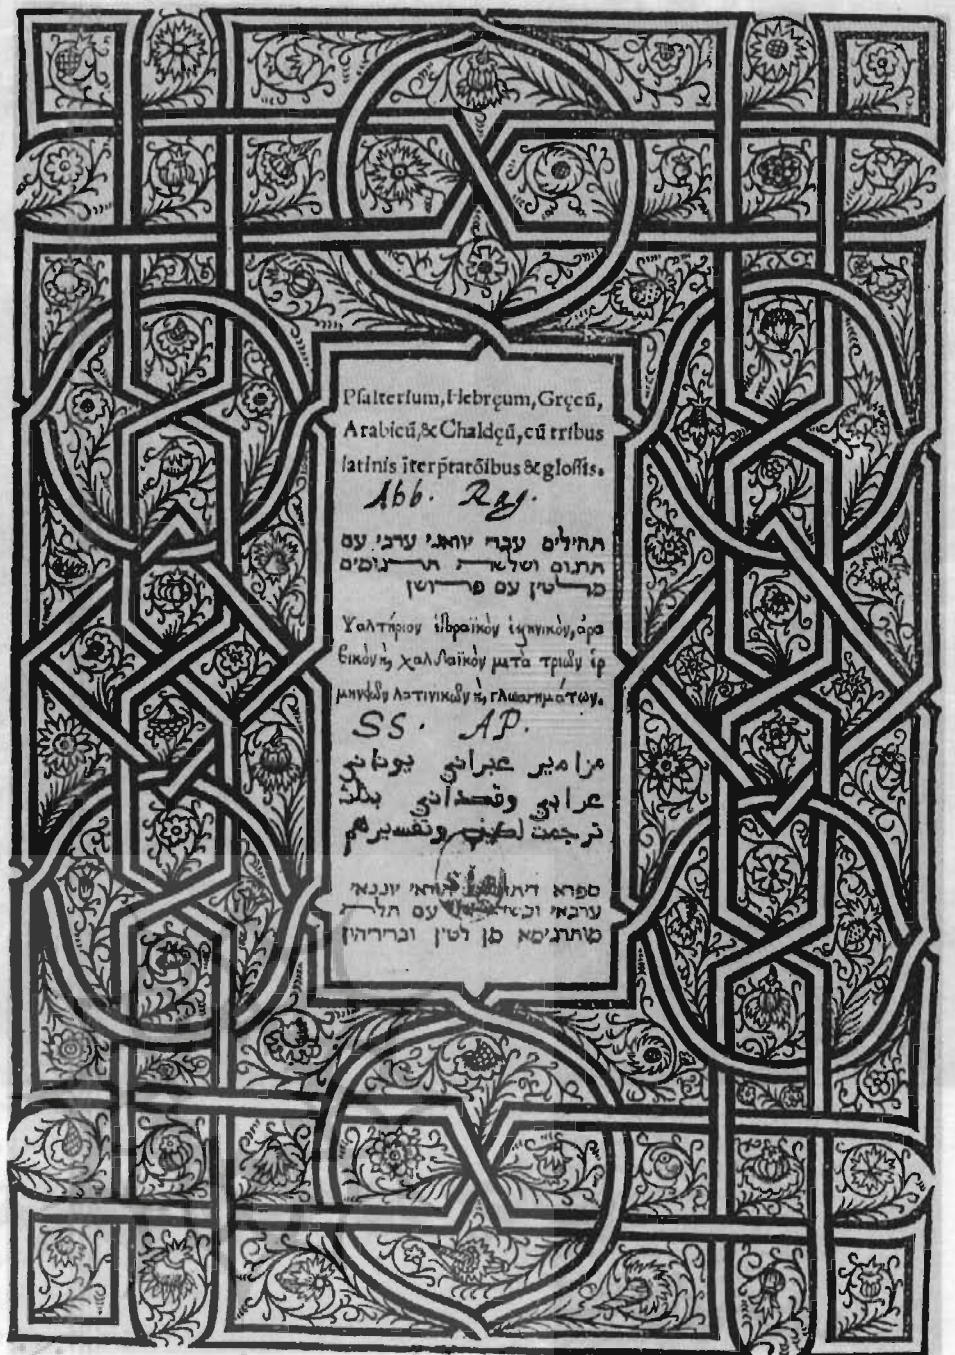 Pſalterium, Hebręum, Gręcū,
Arabicū, & Chaldęū, cū tribus
latinis īterp̄tatōibus & gloſſis.
Abb. Rag.
תהילים עברי יוואני ערבי עם
תרגום ושלאשת תרגומים
מלטין עם פירושן
Ψαλτήριον ἑβραϊκὸν ἑλληνικὸν, ἀρα
βικὸν κ, χαλδαϊκὸν μετὰ τριῶν ἑρ
μηνιῶν λατινικῶν κ, γλωσσημάτων.
SS. AP.
مزامير عبراني يوناني
عرابي وقصداني بثلث
ترجمت لطيني وتفسيرهم
ספרא יונאי
ערבאי עם תלת
מותרגימא מן לטין ובריריהון